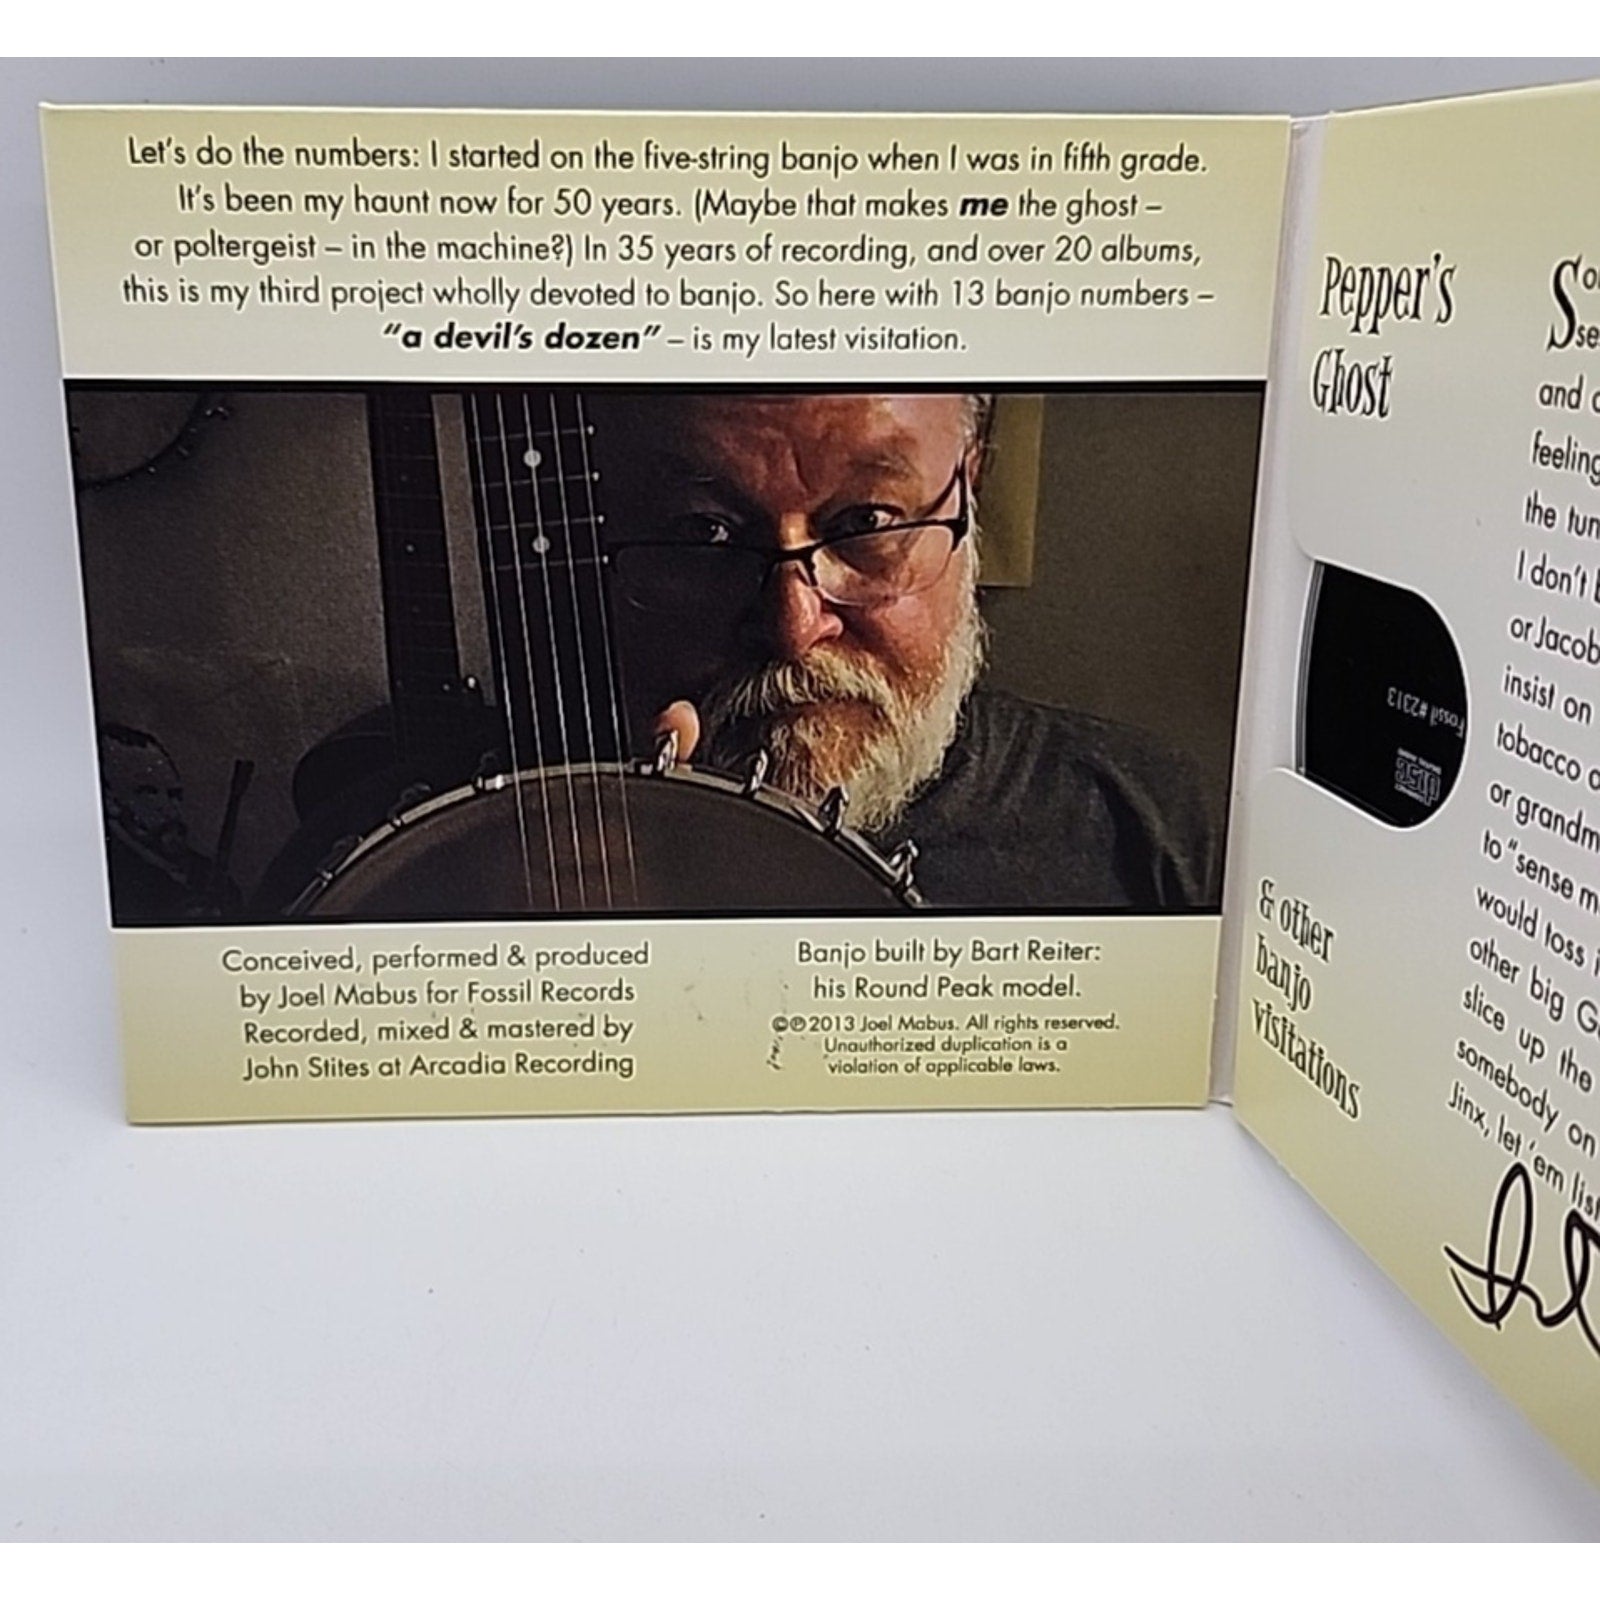 Let's do the numbers: I started on the five-string banjo when I was in fifth grade.
It's been my haunt now for 50 years. (Maybe that makes me the ghost –
or poltergeist – in the machine?) In 35 years of recording, and over 20 albums,
this is my third project wholly devoted to banjo. So here with 13 banjo numbers –
"a devil's dozen" – is my latest visitation.
Conceived, performed & produced
by Joel Mabus for Fossil Records
Recorded, mixed & mastered by
John Stites at Arcadia Recording
Banjo built by Bart Reiter:
his Round Peak model.
©℗2013 Joel Mabus. All rights reserved.
Unauthorized duplication is a
violation of applicable laws.
Pepper's
Ghost
Fossil #2313
& other
banjo
visitations
and
feeling
the tun
I don't
or Jacob
insist on
tobacco
or grandm
to "sense m
would toss
other big G
slice up the
somebody on
Jinx, let 'em list